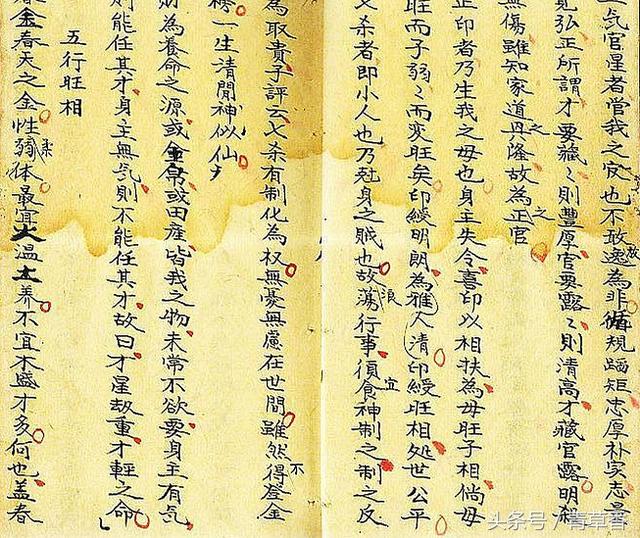 气官星者管我之官也不敢放逸為非循規蹈矩忠厚朴实志量
見弘正所謂才要藏〻則豐厚官要露〻則清高才藏官露明殺
無傷雖知家道之興隆故為之正官
正印者乃生我之母也身主失令喜印以相扶為母旺子相倘母
旺而子弱〻而变旺矣印綬明朗為雅人清印綬旺相処世公平
七杀者即小人也乃尅身之賊也故浪蕩行事宜須食神制之制之反
為取貴子評云七杀有制化為权無憂無慮在世間雖然不得登金
榜一生清閒神似仙
財為養命之源或金帛或田產皆我之物未常不欲要身主有気
則能任其才身主無気則不能任其才故曰才星劫重才輕之命
五行旺相
金春天之金性柔弱体最宜火温土養不宜木盛才多何也盖春
头条号 / 青草香